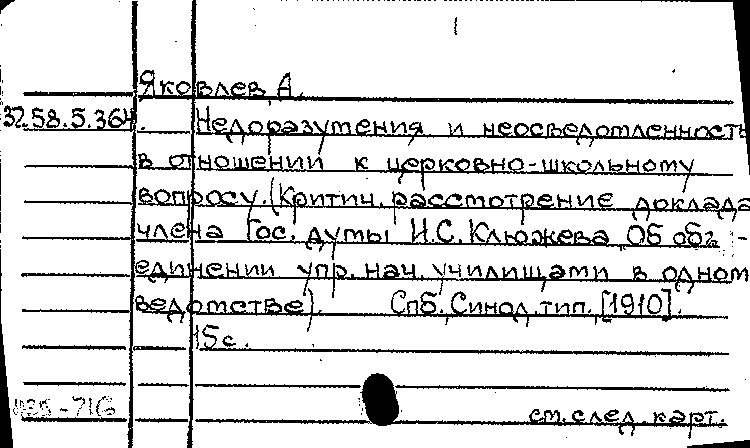 1
Яковлев, А.
32.58.5.364. Недоразумения и неосведомленность
в отношении к церковно-школьному
вопросу. (Критич. рассмотрение доклада
члена Гос. думы И.С. Клюжева „Об объ-
единении упр. нач. училищами в одном
ведомстве). Спб., Синод. тип., [1910].
15 с.
-716
см. след. карт.